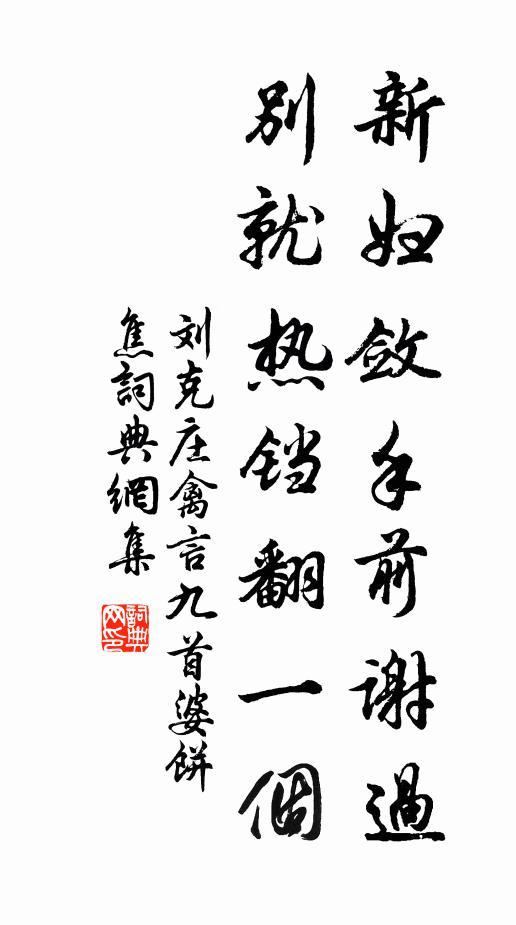 新妇敛手前谢過
别就热铛翻一個
刘克庄禽言九首婆餅
焦詞典網集
詞典网印